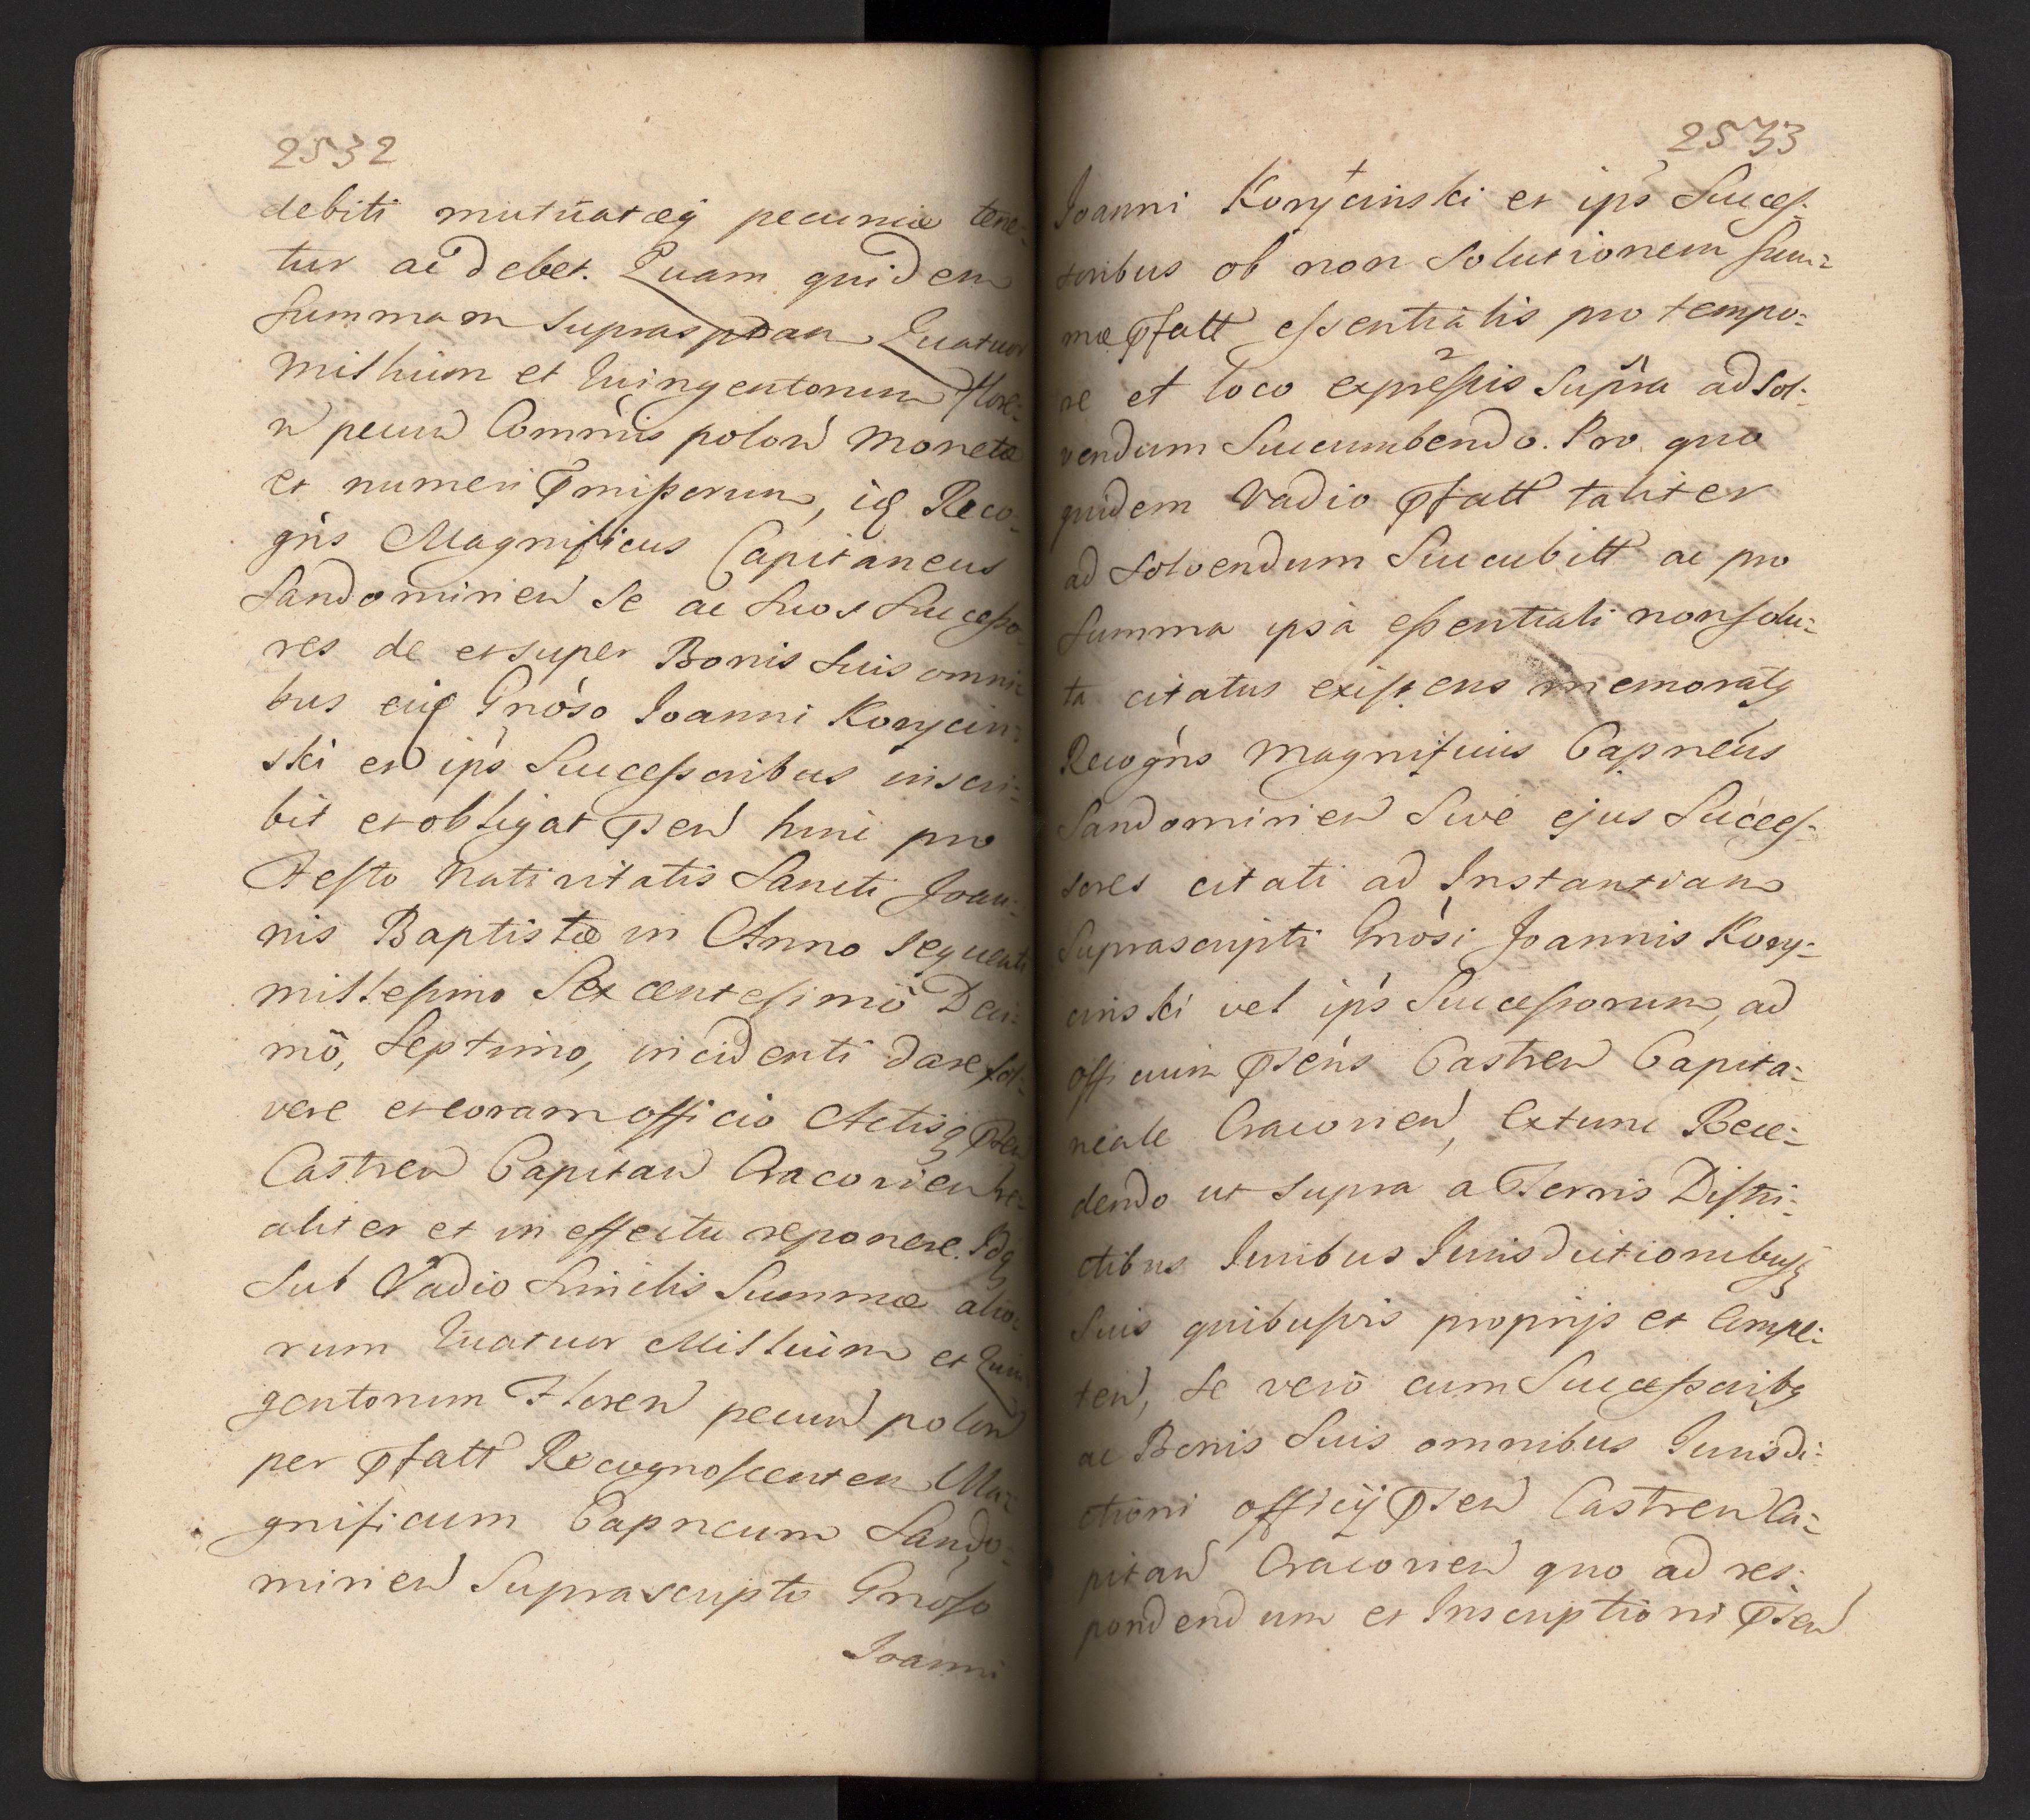 2532
debiti mutuatæq pecuniæ tene-
tur ac debet. Quam quidem
Summam suprasptam Quatuor
Millium et Quingentorum flore-
n pecun Commis polon Monetæ
et numeri Pmissorum, id Reco-
gns Magnificus Capitaneus
Sandomirien Se ac Suos Successo-
res de et super Bonis Suis omni-
bus eid Gnoso Joanni Korycin-
ski et ips Successoribus inscri-
bit et obligat Psen hinc pro
Festo Nativitatis Sancti Joan-
nis Baptistæ in Anno sequenti
millesimo Sexcentesimo Deci-
mo, Septimo, incidenti dare sol-
vere et coram officio Actisq Psen
Castren Capitan Cracovien re-
aliter et in effectu reponere. Idq
Sub Vadio Similis Summæ alio-
rum Quatuor Millium et Quin-
gentorum Floren pecun polon
per Pfatt Recognoscentem Ma-
gnificum Capneum Sando-
mirien Suprascripto Gnoso
Joanni
2533
Joanni Korycinski et ips Succes-
soribus ob non Solutionem Sum-
mæ Pfatt essentialis pro tempo-
re et loco expressis Supra ad Sol-
vendum Succumbendo. Pro quo
quidem Vadio Pfatt taliter
ad Solvendum Succubitt ac pro
Summa ipsa essentiali non solu-
ta citatus existens memoratq
Recogns Magnificus Capneus
Sandomirien Sive ejus Succes-
sores citati ad Instantiam
Suprascripti Gnosi Joannis Kory-
cinski vel ips Successorum, ad
officium Psens Castren Capita-
neale Cracovien, Extunc Rece-
dendo ut Supra a Terris Distri-
ctibus Juribus Jurisdictionibusq
Suis quibusvis proprijs et Compe-
ten, Se vero cum Successoribq
ac Bonis Suis omnibus Jurisdi-
ctioni officij Psen Castren Ca-
pitan Cracovien quo ad res-
pondendum et Inscriptioni Psen